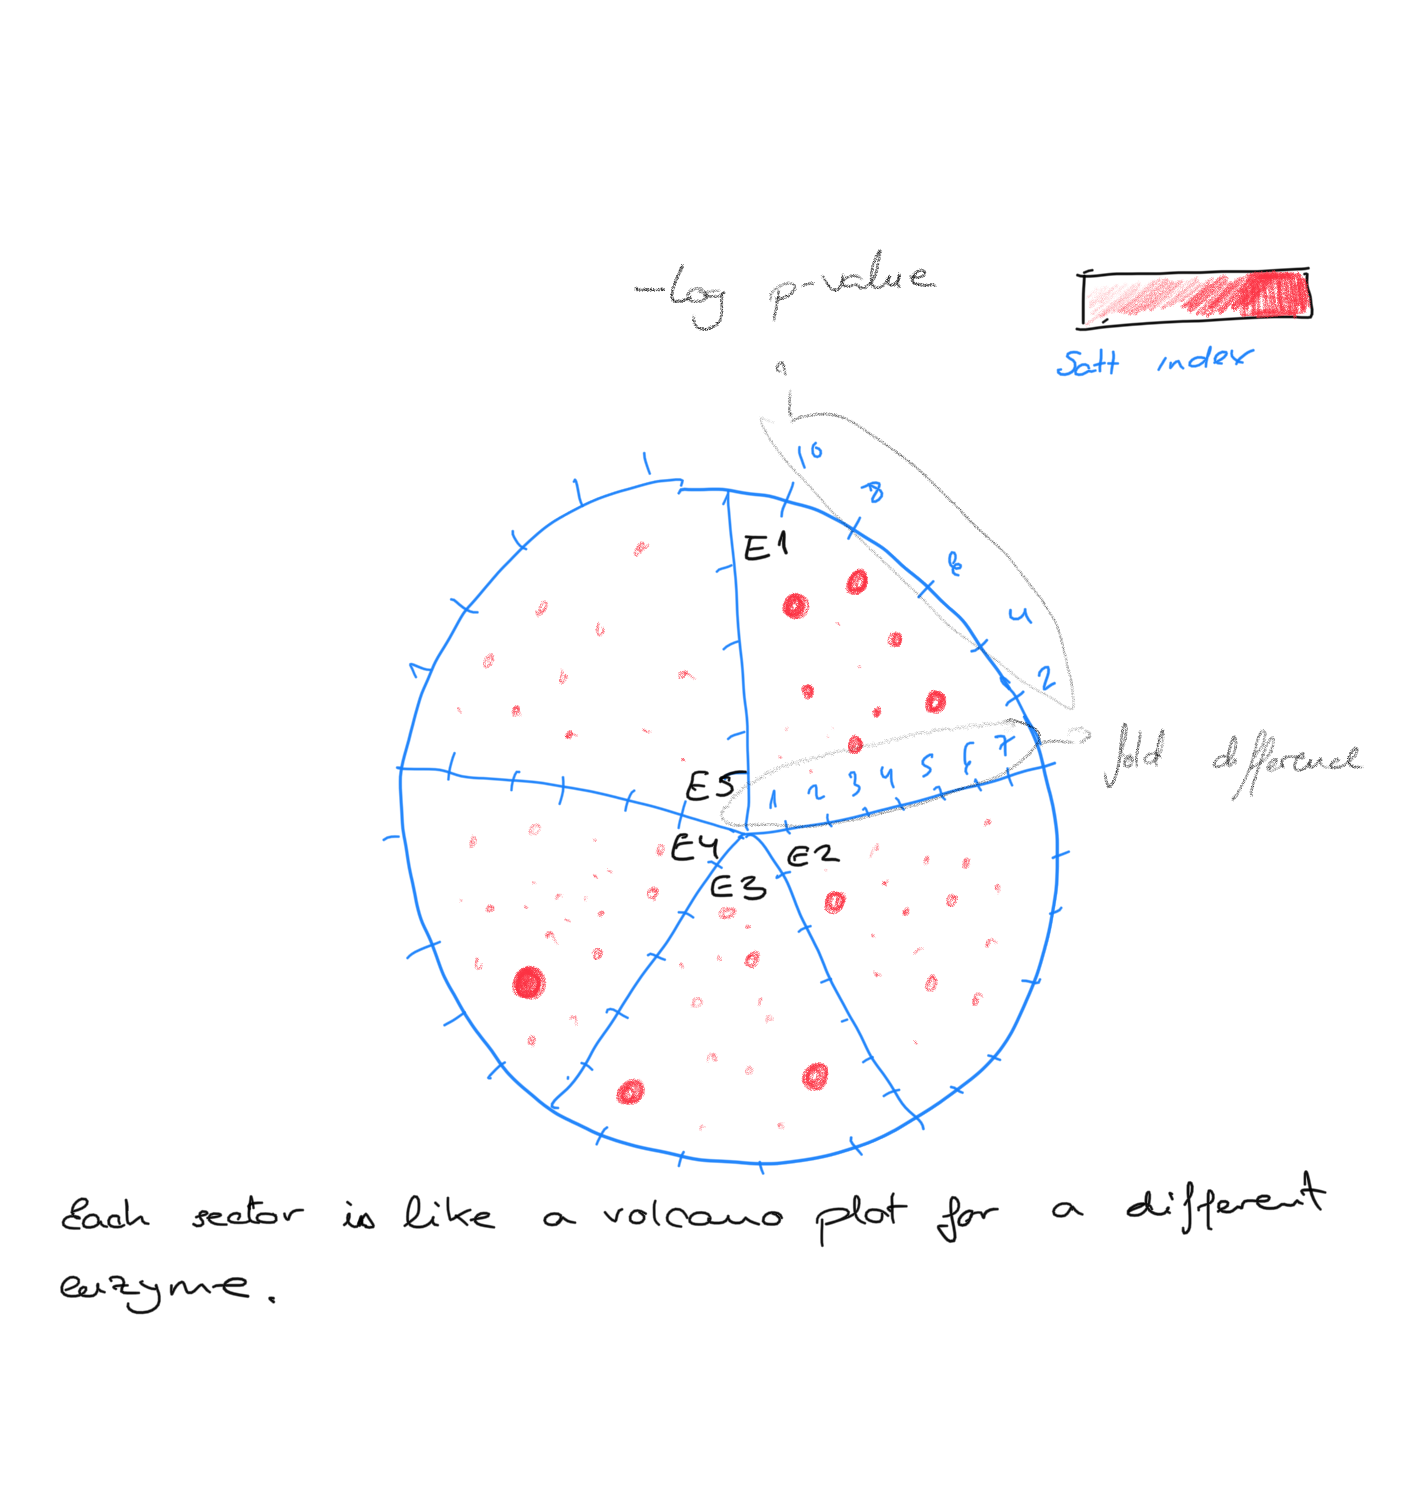 -log p-value
Satt index
10
8
4
2
E1
fold difference
E5
1 2 3 4 5 6 7
E4
E2
E3
Each sector is like a volcano plot for a different
enzyme.